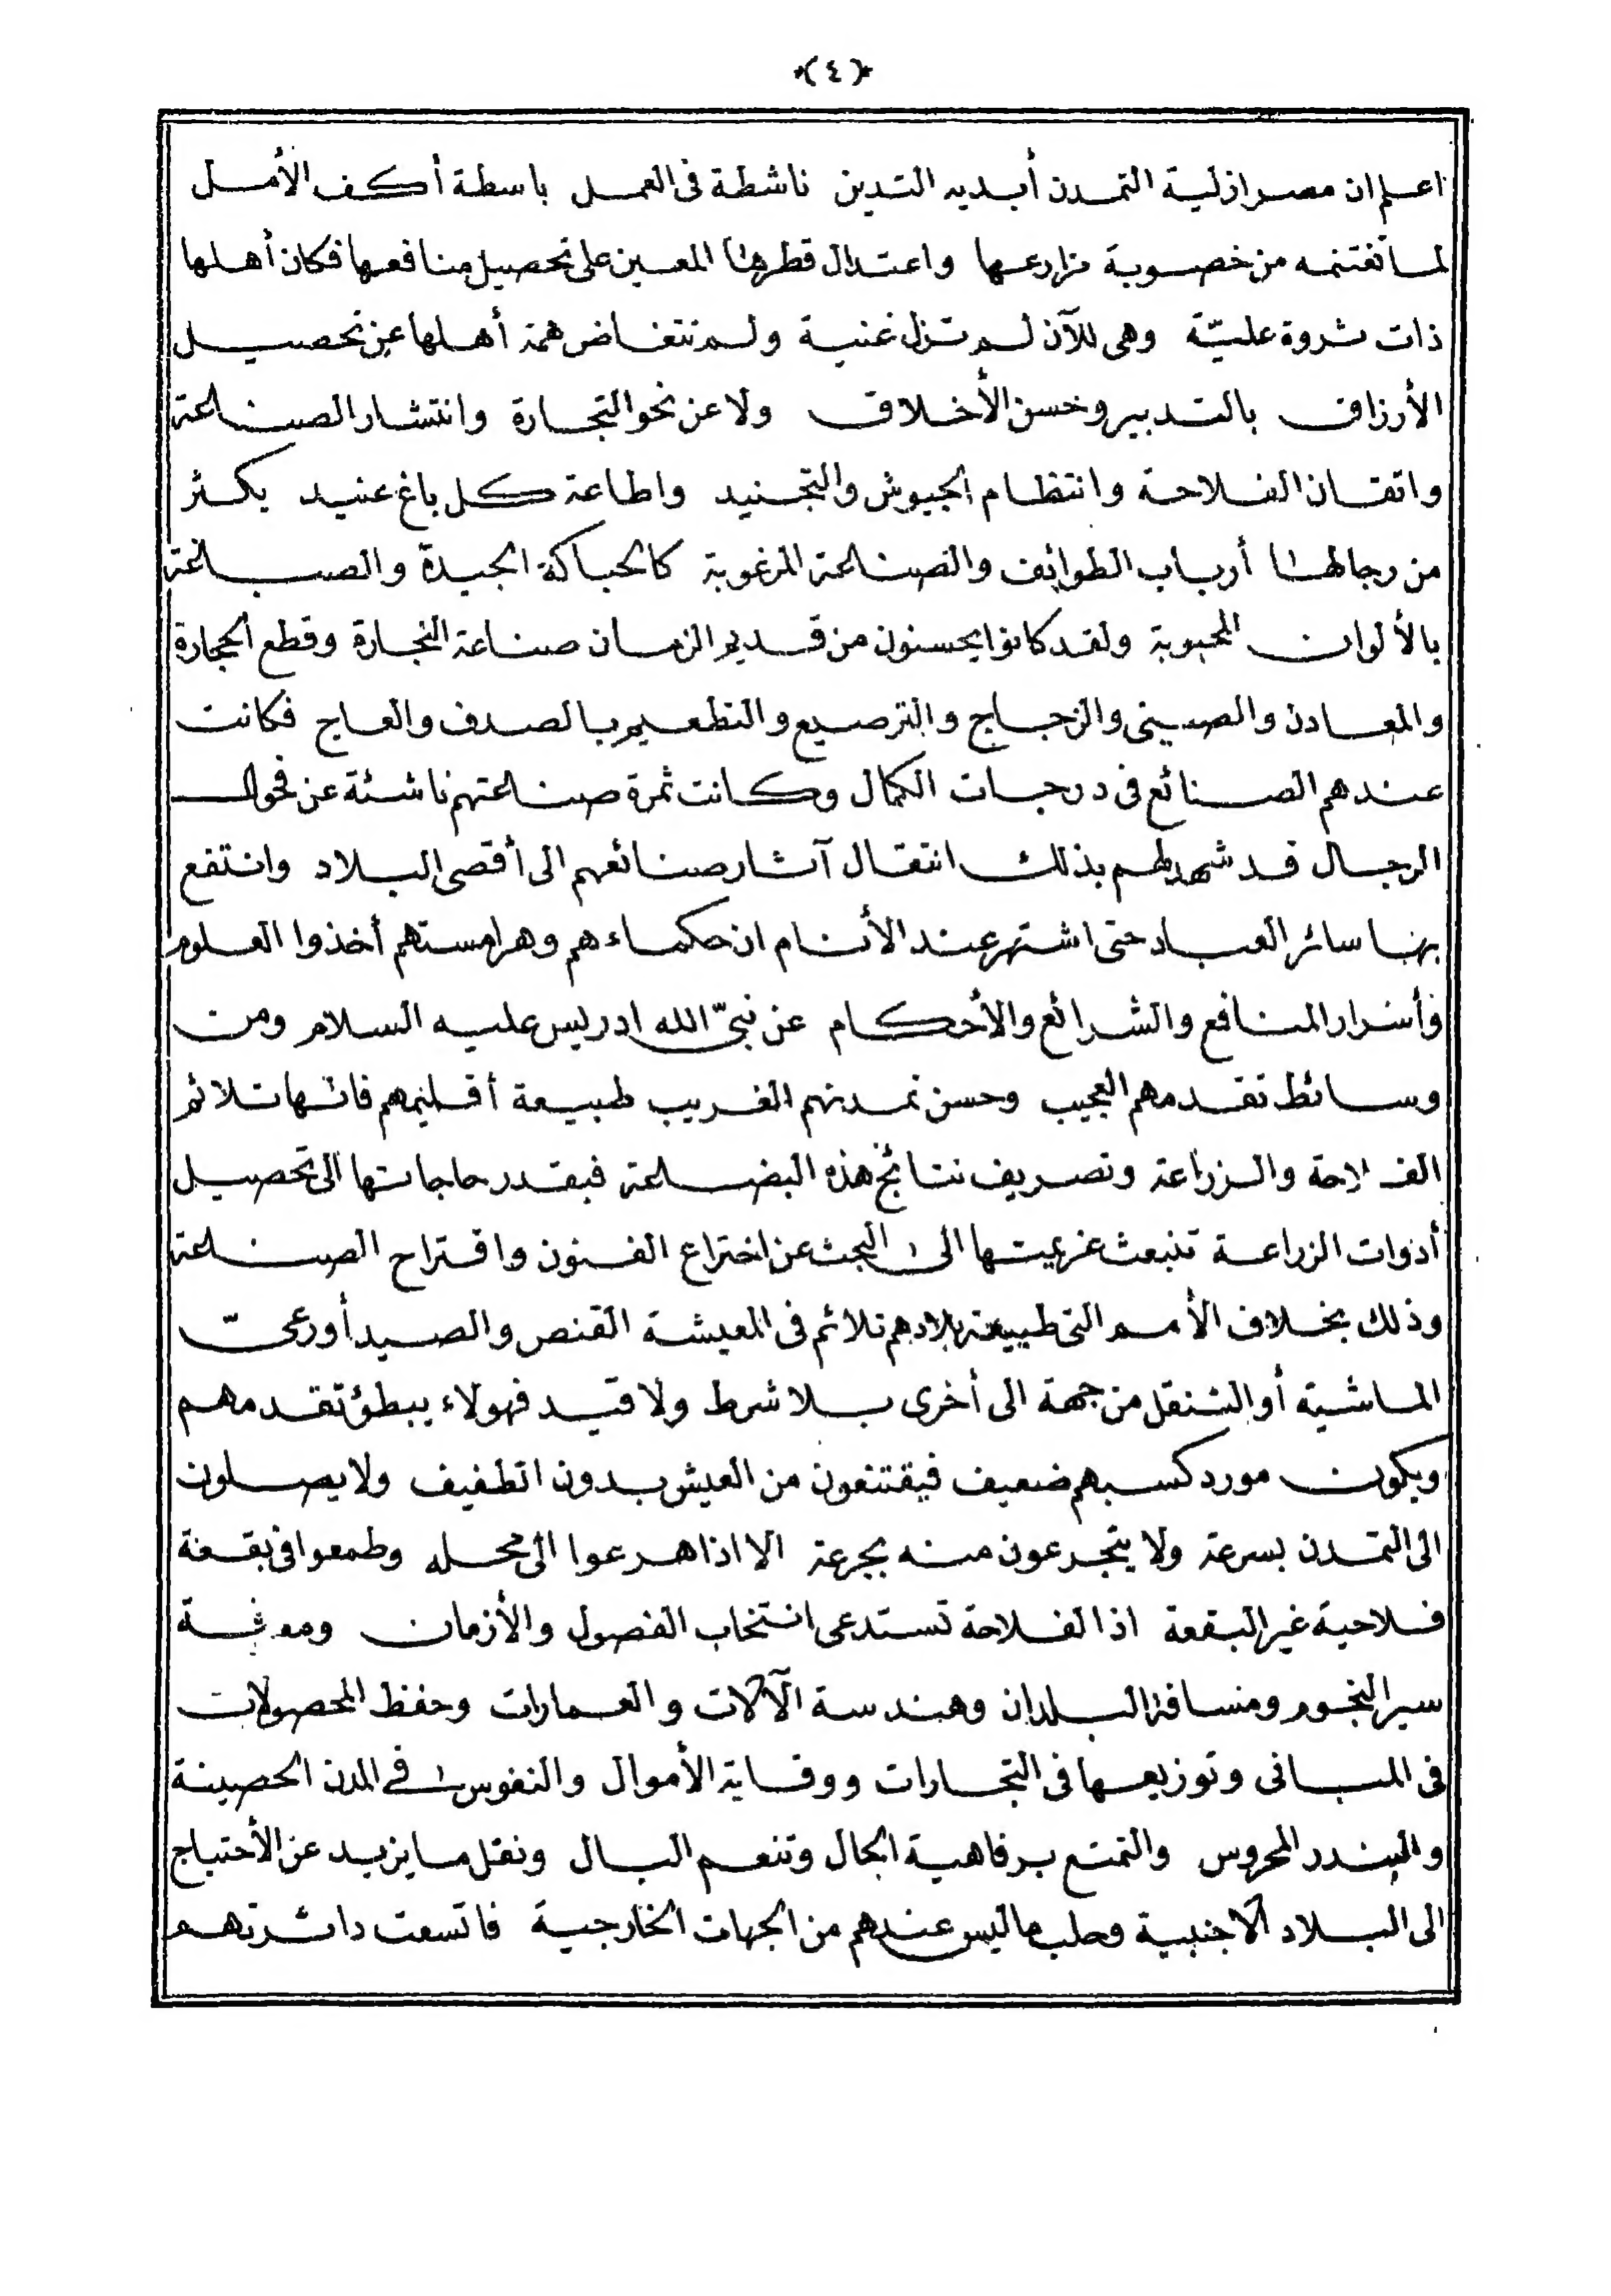 *(٤)*
اعلم ان مصر ازلية التمدن أبديه التدين ناشطة فى العمل باسطة أكف الأمل
لما تغتنمه من خصوبة مزارعها واعتدال قطرها المعين على تحصيل منافعها فكان أهلها
ذات ثروة عليّة وهى للآن لم تزل غنية ولم تتغاض همة أهلها عن تحصيل
الأرزاق بالتدبير وحسن الأخلاق ولا عن نحو التجارة وانتشار الصناعة
واتقان الفلاحة وانتظام الجيوش والتجنيد واطاعة كل باغ عنيد يكثر
من رجالها أرباب الطوائف والصناعة المرغوبة كالحياكة الجيدة والصباغة
بالألوان المحبوبة ولقد كانوا يحسنون من قديم الزمان صناعة النجارة وقطع الحجارة
والمعادن والصينى والزجاج والترصيع والتطعيم بالصدف والعاج فكانت
عندهم الصنائع فى درجات الكمال وكانت ثمرة صناعتهم ناشئة عن فحول
الرجال قد شهد لهم بذلك انتقال آثار صنائعهم الى أقصى البلاد وانتفع
بها سائر العباد حتى اشتهر عند الأنام ان حكماءهم وهرامستهم أخذوا العلوم
وأسرار المنافع والشرائع والأحكام عن نبىّ الله ادريس عليه السلام ومن
وسائط تقدمهم العجيب وحسن تمدنهم الغريب طبيعة أقليمهم فانها تلائم
الفلاحة والزراعة وتصريف نتائج هذه البضاعة فبقدر حاجاتها الى تحصيل
أدوات الزراعة تنبعث عزيمتها الى البحث عن اختراع الفنون واقتراح الصناعة
وذلك بخلاف الأمم التى طبيعة بلادهم تلائم فى المعيشة القنص والصيد أو رعىّ
الماشية أو التنقل من جهة الى أخرى بلا شرط ولا قيد فهولاء يبطؤ تقدمهم
ويكون مورد كسبهم ضعيف فيقتنعون من العيش بدون اتطفيف ولا يصلون
الى التمدن بسرعة ولا يتجرعون منه بجرعة الا اذا هرعوا الى محله وطمعوا فى بقعة
فلاحية غير البقعة اذ الفلاحة تستدعى انتخاب الفصول والأزمان ومعرفة
سير النجوم ومسافة البلدان وهندسة الآلات والعمارات وحفظ المحصولات
فى المبانى وتوزيعها فى التجارات ووقاية الأموال والنفوس فى المدن الحصينة
والبندر المحروس والتمتع برفاهية الحال وتنعم البال ونقل ما يزيد عن الأحتياج
الى البلاد الاجنبية وجلب ما ليس عندهم من الجهات الخارجية فاتسعت دائرتهم